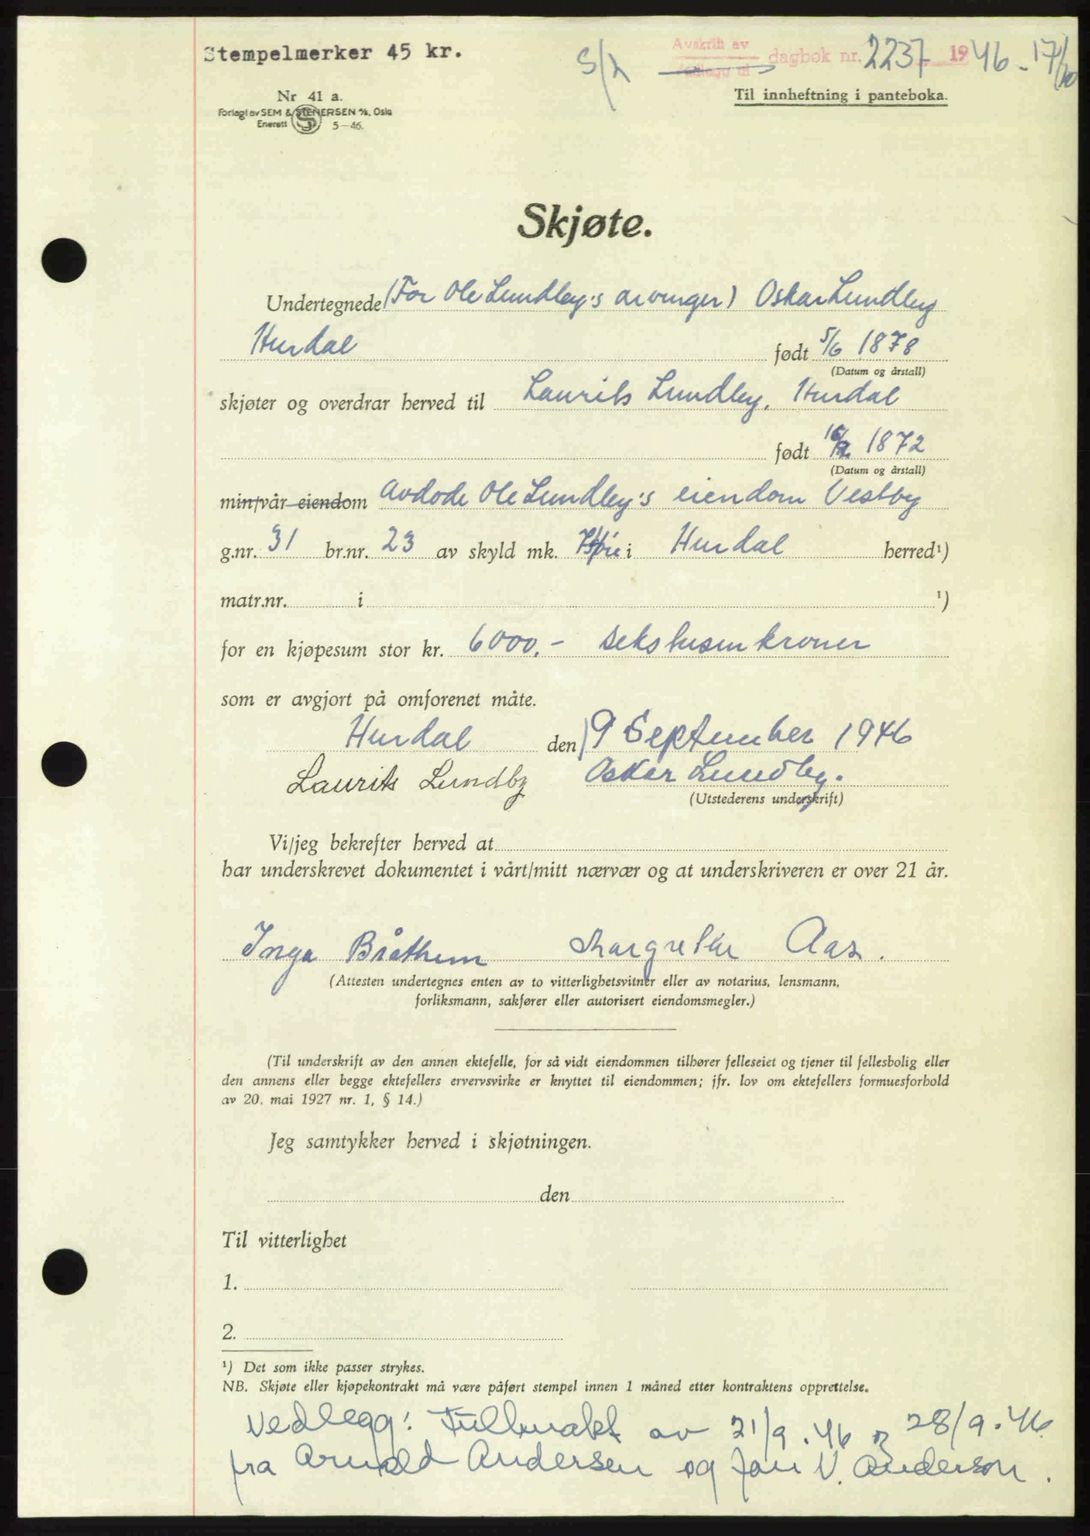 Stempelmerker 45 kr.
Avskrift av
dagbok nr. 2237 1946 - 17/10
Til innheftning i panteboka.
Nr 41 a.
Forlagt av SEM & STENERSEN A/S, Oslo
Enerett 5-46.
Skjøte.
Undertegnede (For Ole Lundby's arvinger) Oskar Lundby
Hurdal født 5/6 1878
(Datum og årstall)
skjøter og overdrar herved til Laurits Lundby, Hurdal
født 1872
(Datum og årstall)
min/vår eiendom avdøde Ole Lundby's eiendom Vestby
g.nr. 31 br.nr. 23 av skyld mk. i Hurdal herred¹)
matr.nr. i ¹)
for en kjøpesum stor kr. 6000.- sekstusen kroner
som er avgjort på omforenet måte.
Hurdal den 9 September 1946
Laurits Lundby Oskar Lundby.
(Utstederens underskrift)
Vi/jeg bekrefter herved at
har underskrevet dokumentet i vårt/mitt nærvær og at underskriveren er over 21 år.
Inga Bråthen Margrethe Aas.
(Attesten undertegnes enten av to vitterlighetsvitner eller av notarius, lensmann,
forliksmann, sakfører eller autorisert eiendomsmegler.)
(Til underskrift av den annen ektefelle, for så vidt eiendommen tilhører felleseiet og tjener til fellesbolig eller
den annens eller begge ektefellers ervervsvirke er knyttet til eiendommen; jfr. lov om ektefellers formuesforhold
av 20. mai 1927 nr. 1, § 14.)
Jeg samtykker herved i skjøtningen.
den
Til vitterlighet
1.
2.
¹) Det som ikke passer strykes.
NB. Skjøte eller kjøpekontrakt må være påført stempel innen 1 måned etter kontraktens opprettelse.
Vedlegg: Fullmakt av 21/9.46 og 28/9.46
fra Arnold Andersen og Jon V. Anderson.